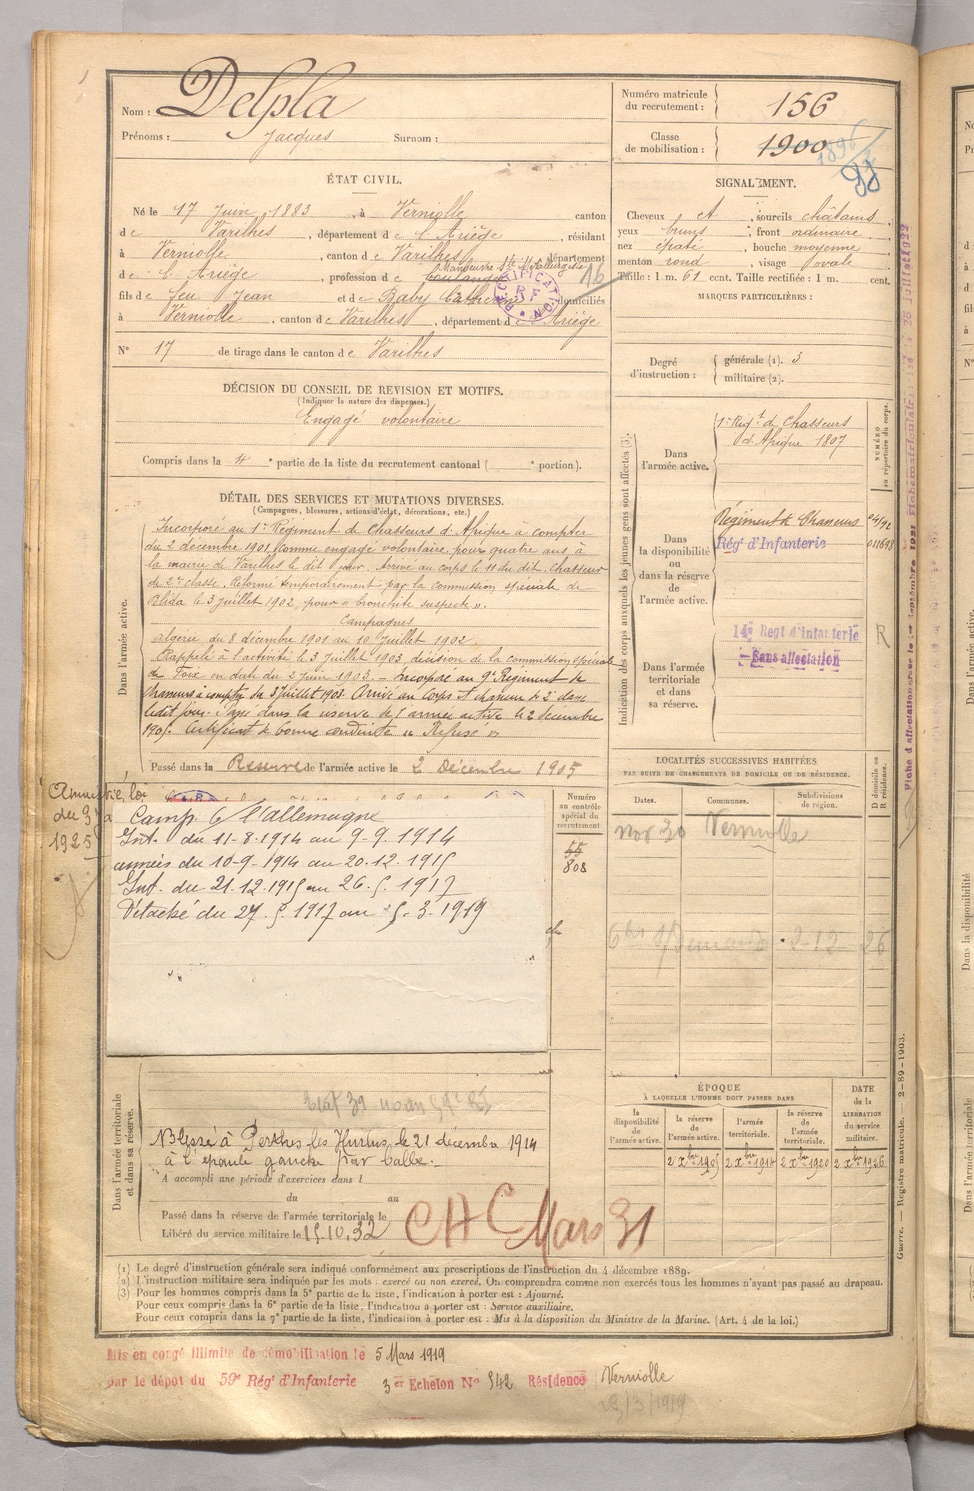 Nom : Delpla
Prénoms : Jacques Surnom :
Numéro matricule du recrutement : 156
Classe de mobilisation : 1900
1896
ÉTAT CIVIL.
Né le 17 Juin 1883, à Verniolle canton
de Varilhes, département de l'Ariège, résidant
à Verniolle, canton de Varilhes, département
de l'Ariège, profession de boulanger
Manœuvre Sté Métallurgiste
16
RECTIFICATION
RF
fils de feu Jean et de Baby Catherine domiciliés
à Verniolle, canton de Varilhes, département de l'Ariège
N° 17 de tirage dans le canton de Varilhes
DÉCISION DU CONSEIL DE REVISION ET MOTIFS.
(Indiquer la nature des dispenses.)
Engagé volontaire
Compris dans la 4e partie de la liste du recrutement cantonal ( e portion).
DÉTAIL DES SERVICES ET MUTATIONS DIVERSES.
(Campagnes, blessures, actions d'éclat, décorations, etc.)
Dans l'armée active.
Incorporé au 1er Régiment de Chasseurs d'Afrique à compter
du 2 décembre 1901 comme engagé volontaire pour quatre ans à
la mairie de Varilhes le dit jour. Arrivé au corps le 11 du dit, chasseur
de 2e classe. Réformé temporairement par la commission spéciale de
Blida le 3 juillet 1902, pour « bronchite suspecte ».
Campagnes
Algérie du 8 décembre 1901 au 10 Juillet 1902.
Rappelé à l'activité le 3 Juillet 1903 décision de la commission spéciale
de Foix en date du 2 juin 1903. – Incorporé au 9e Régiment de
Chasseurs à compter du 3 Juillet 1903. Arrivé au Corps et chasseur de 2e classe
ledit jour. Passé dans la réserve de l'armée active le 2 décembre
1905. Certificat de bonne conduite « Refusé »
Passé dans la Réserve de l'armée active le 2 Décembre 1905
Amnistié, loi
du 3
1925
Camp. c/ l'allemagne
Int. du 11-8-1914 au 9-9-1914
armées du 10-9-1914 au 20.12.1915
Int. du 21.12.1915 au 26.5.1917
Détaché du 27.5.1917 au 5.3.1919
Numéro au contrôle spécial du recrutement
55
808
Dans l'armée territoriale et dans sa réserve.
Blessé à Perthes les Hurlus, le 21 décembre 1914
à l'épaule gauche par balle.
A accompli une période d'exercices dans l
du au
Passé dans la réserve de l'armée territoriale le
Libéré du service militaire le 15.10.32
CAC Mars 31
SIGNALEMENT.
Cheveux et, sourcils châtains
yeux bruns, front ordinaire
nez épaté, bouche moyenne
menton rond, visage ovale
Taille : 1 m. 61 cent. Taille rectifiée : 1 m. cent.
MARQUES PARTICULIÈRES :
Degré d'instruction : générale (1). 3
militaire (2).
Indication des corps auxquels les jeunes gens sont affectés (3).
NUMÉRO au répertoire du corps.
Dans l'armée active.
1er Régt de Chasseurs
d'Afrique 1807
Dans la disponibilité ou dans la réserve de l'armée active.
Régiment de Chasseurs
Régt d'Infanterie
011698
Dans l'armée territoriale et dans sa réserve.
14e Regt d'infanterie
Sans affectation
R
LOCALITÉS SUCCESSIVES HABITÉES
PAR SUITE DE CHANGEMENTS DE DOMICILE OU DE RÉSIDENCE.
Dates. Communes. Subdivisions de région. D domicile ou R résidence.
nov 30 Verniolle
2-12-26
ÉPOQUE
À LAQUELLE L'HOMME DOIT PASSER DANS
la disponibilité de l'armée active.
la réserve de l'armée active.
l'armée territoriale.
la réserve de l'armée territoriale.
DATE de la LIBÉRATION du service militaire.
2 Xbre 1905 2 Xbre 1914 2 Xbre 1920 2 Xbre 1926
Guerre. — Registre matricule. 2-89-1903.
(1) Le degré d'instruction générale sera indiqué conformément aux prescriptions de l'instruction du 4 décembre 1889.
(2) L'instruction militaire sera indiquée par les mots : exercé ou non exercé. On comprendra comme non exercés tous les hommes n'ayant pas passé au drapeau.
(3) Pour les hommes compris dans la 5e partie de la liste, l'indication à porter est : Ajourné.
Pour ceux compris dans la 6e partie de la liste, l'indication à porter est : Service auxiliaire.
Pour ceux compris dans la 7e partie de la liste, l'indication à porter est : Mis à la disposition du Ministre de la Marine. (Art. 4 de la loi.)
Mis en congé illimité de démobilisation le 5 Mars 1919
par le dépôt du 59e Régt d'Infanterie 3er Echelon N° 542 Résidence Verniolle
25/3/1919